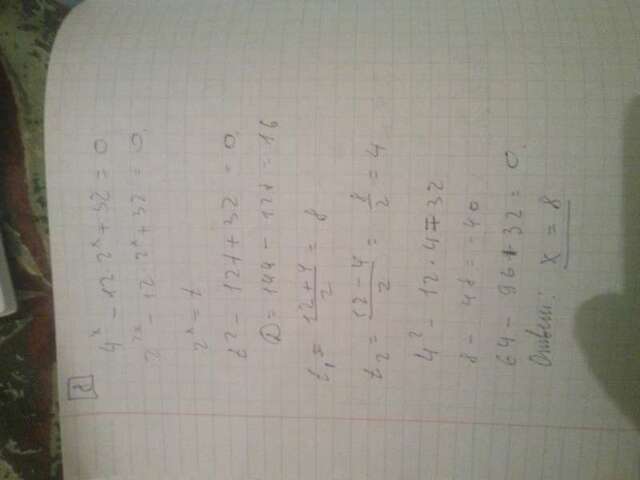 8
4ˣ - 12·2ˣ + 32 = 0
2²ˣ - 12·2ˣ + 32 = 0.
2ˣ = t
t² - 12t + 32 = 0.
D = 144 - 128 = 16
t₁ = (12+4)/2 = 8
t₂ = (12-4)/2 = 8/2 = 4
4² - 12·4 + 32
8 - 48 = -40
64 - 96 + 32 = 0.
Ответ: x = 8